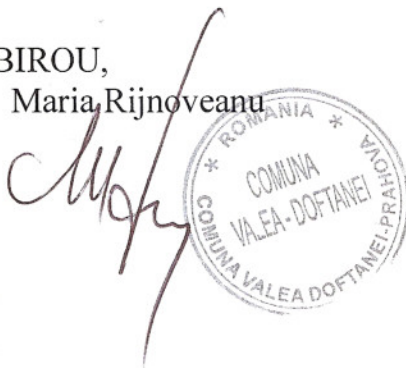 BIROU,
Maria Rijnoveanu
* ROMANIA *
COMUNA VALEA DOFTANEI-PRAHOVA
COMUNA
VALEA-DOFTANEI